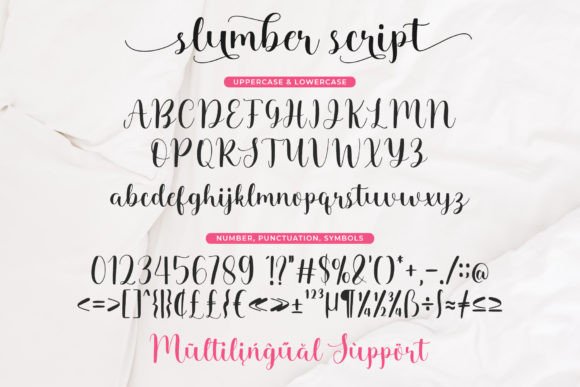 slumber script
UPPERCASE & LOWERCASE
ABCDEFGHIJKLMN
OPQRSTUVWXYZ
abcdefghijklmnopqrstuvwxyz
NUMBER, PUNCTUATION, SYMBOLS
0123456789 !?"#$%&'()*+,-./:;@
<=>[]^{|}¢££{€«»±¹²³µ¶¼½¾ß÷∫≈≠≤≥
Mūltilįńĝűăl Sùppört